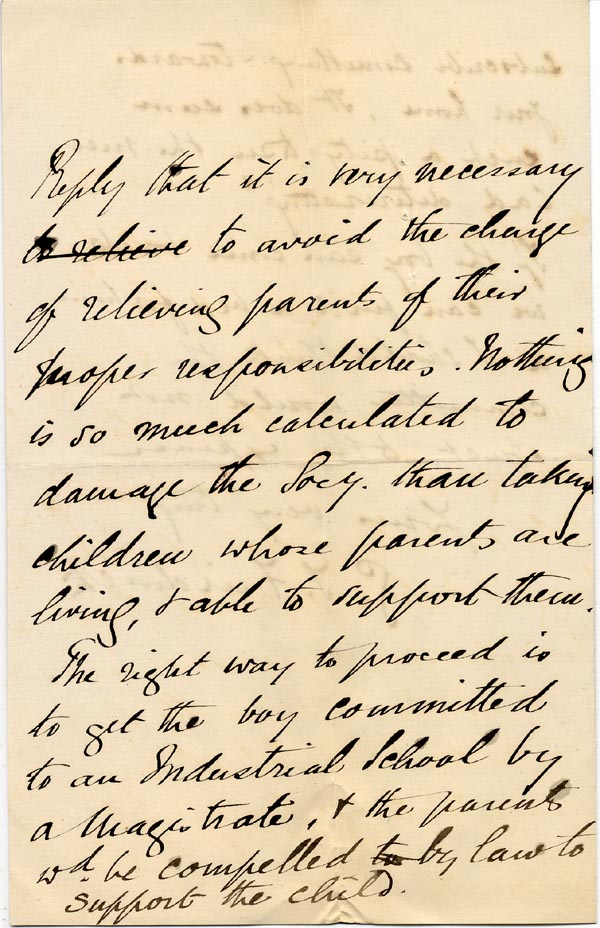 Reply that it is very necessary
to relieve to avoid the charge
of relieving parents of their
proper responsibilities. Nothing
is so much calculated to
damage the Socy. than taking
children whose parents are
living, & able to support them.
The right way to proceed is
to get the boy committed
to an Industrial School by
a Magistrate, & the parents
wd. be compelled to by law to
support the child.